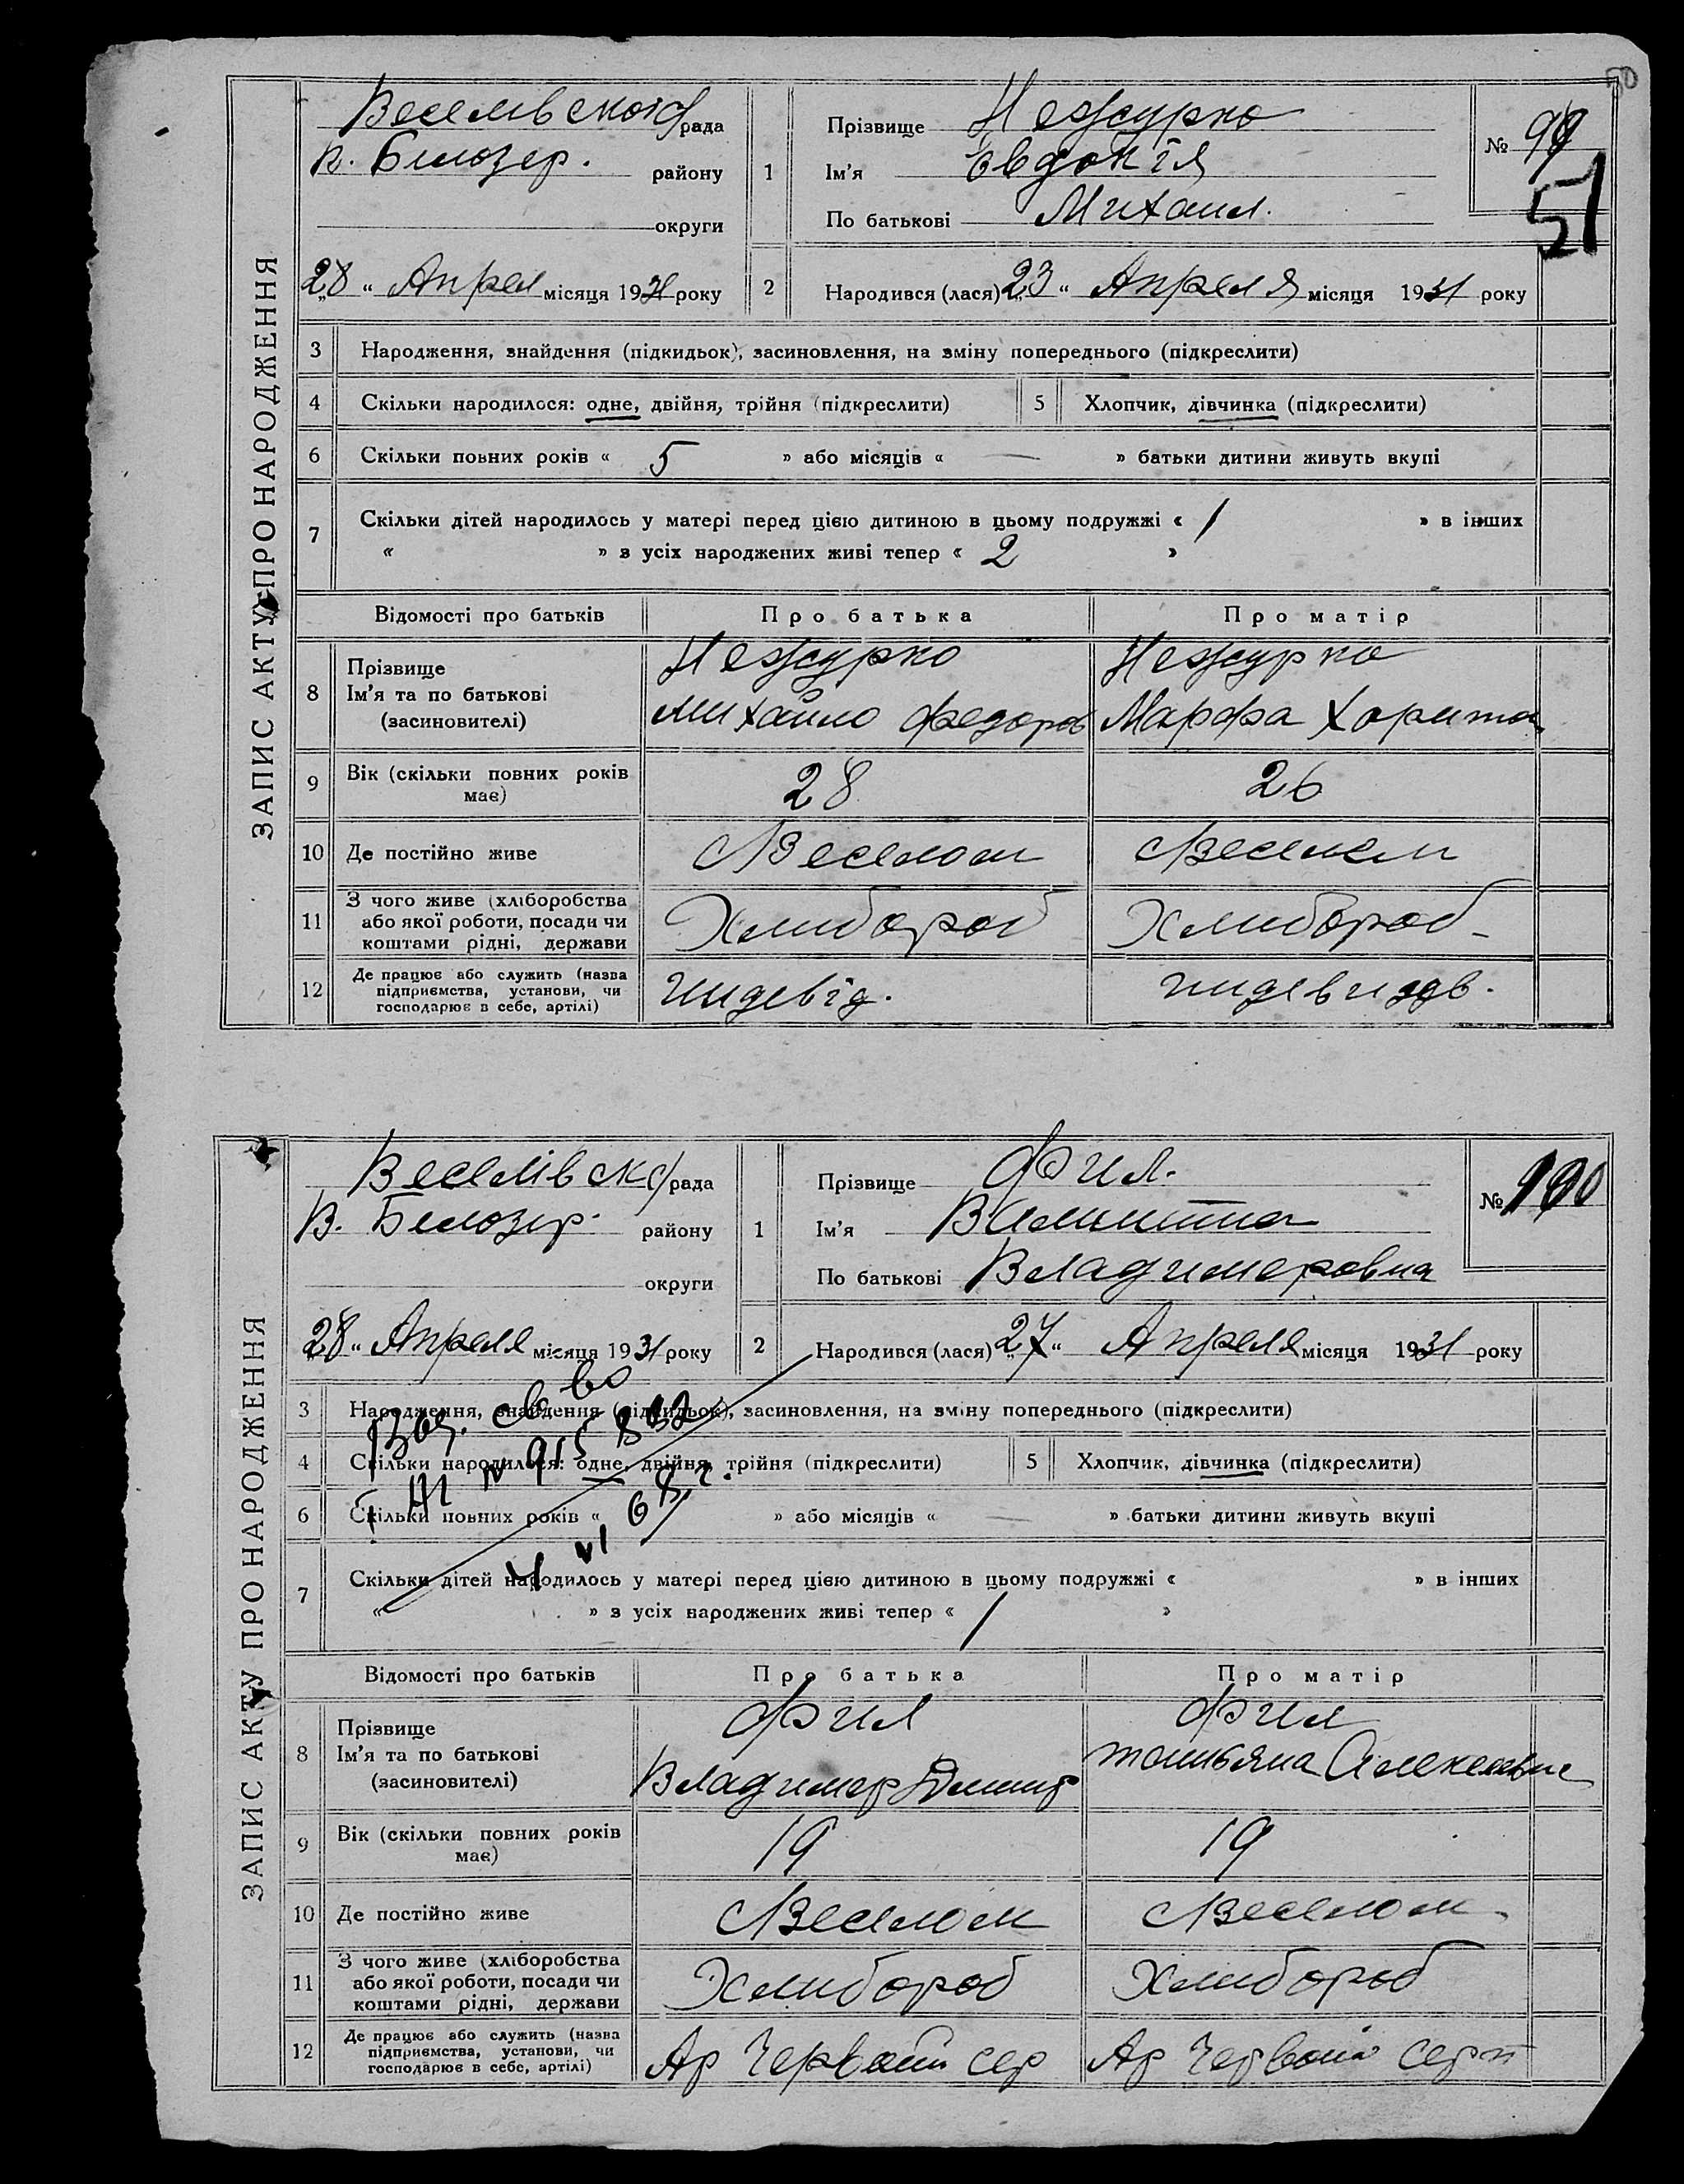 50
ЗАПИС АКТУ ПРО НАРОДЖЕННЯ
Веселівской рада
В. Білозер. району
округи
„28“ Апрел місяця 1931 року
1
Прізвище Нежурко
Ім'я Євдокія
По батькові Михаил.
№ 99
51
2
Народився (лася) „23“ Апреля місяця 1931 року
3 Народження, знайдення (підкидьок), засиновлення, на зміну попереднього (підкреслити)
4 Скільки народилося: одне, двійня, трійня (підкреслити) 5 Хлопчик, дівчинка (підкреслити)
6 Скільки повних років « 5 » або місяців « — » батьки дитини живуть вкупі
7 Скільки дітей народилось у матері перед цією дитиною в цьому подружжі « 1 » в інших
« » з усіх народжених живі тепер « 2 »
Відомості про батьків Про батька Про матір
8 Прізвище Ім'я та по батькові (засиновителі)
Нежурко Нежурко
Михайло Федоров Марфа Харито
9 Вік (скільки повних років має) 28 26
10 Де постійно живе с Веселом с Веселом
11 З чого живе (хліборобства або якої роботи, посади чи коштами рідні, держави Хлибороб Хлибороб
12 Де працює або служить (назва підприємства, установи, чи господарює в себе, артілі) индевід. индевидв.
ЗАПИС АКТУ ПРО НАРОДЖЕННЯ
Веселівско рада
В. Белозер. району
округи
„28“ Апреля місяця 1931 року
1
Прізвище Фил.
Ім'я Валинтина
По батькові Владимеровна
№ 100
2
Народився (лася) „27“ Апреля місяця 1931 року
3 Народження, знайдення (підкидьок), засиновлення, на зміну попереднього (підкреслити)
4 Скільки народилося: одне, двійня, трійня (підкреслити) 5 Хлопчик, дівчинка (підкреслити)
6 Скільки повних років « » або місяців « — » батьки дитини живуть вкупі
7 Скільки дітей народилось у матері перед цією дитиною в цьому подружжі « » в інших
« » з усіх народжених живі тепер « 1 »
св-во
№ 915832
4 VI 68 г.
Відомості про батьків Про батька Про матір
8 Прізвище Ім'я та по батькові (засиновителі)
Фил Фил
Владимер Дмитр Татьяна Алексеевне
9 Вік (скільки повних років має) 19 19
10 Де постійно живе с Веселом с Веселом
11 З чого живе (хліборобства або якої роботи, посади чи коштами рідні, держави Хлибороб Хлибороб
12 Де працює або служить (назва підприємства, установи, чи господарює в себе, артілі) Ар Червоний сер Ар Червоний серп